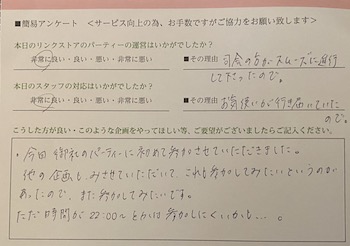 ■簡易アンケート　＜サービス向上の為、お手数ですがご協力をお願い致します＞
本日のリンクストアのパーティーの運営はいかがでしたか？
非常に良い・良い・悪い・非常に悪い　■その理由　司会の方がスムーズに進行
して下さったので。
本日のスタッフの対応はいかがでしたか？
非常に良い・良い・悪い・非常に悪い　■その理由　お気使いが行き届いていた
ので。
こうした方が良い・このような企画をやってほしい等、ご要望がございましたらご記入ください。
・今回 御社のパーティーに初めて参加させていただきました。
他の企画もみさせていただいて、これも参加してみたいというのが
あったので、また参加してみたいです。
ただ時間が 22:00〜とかは参加しにくいかも…。